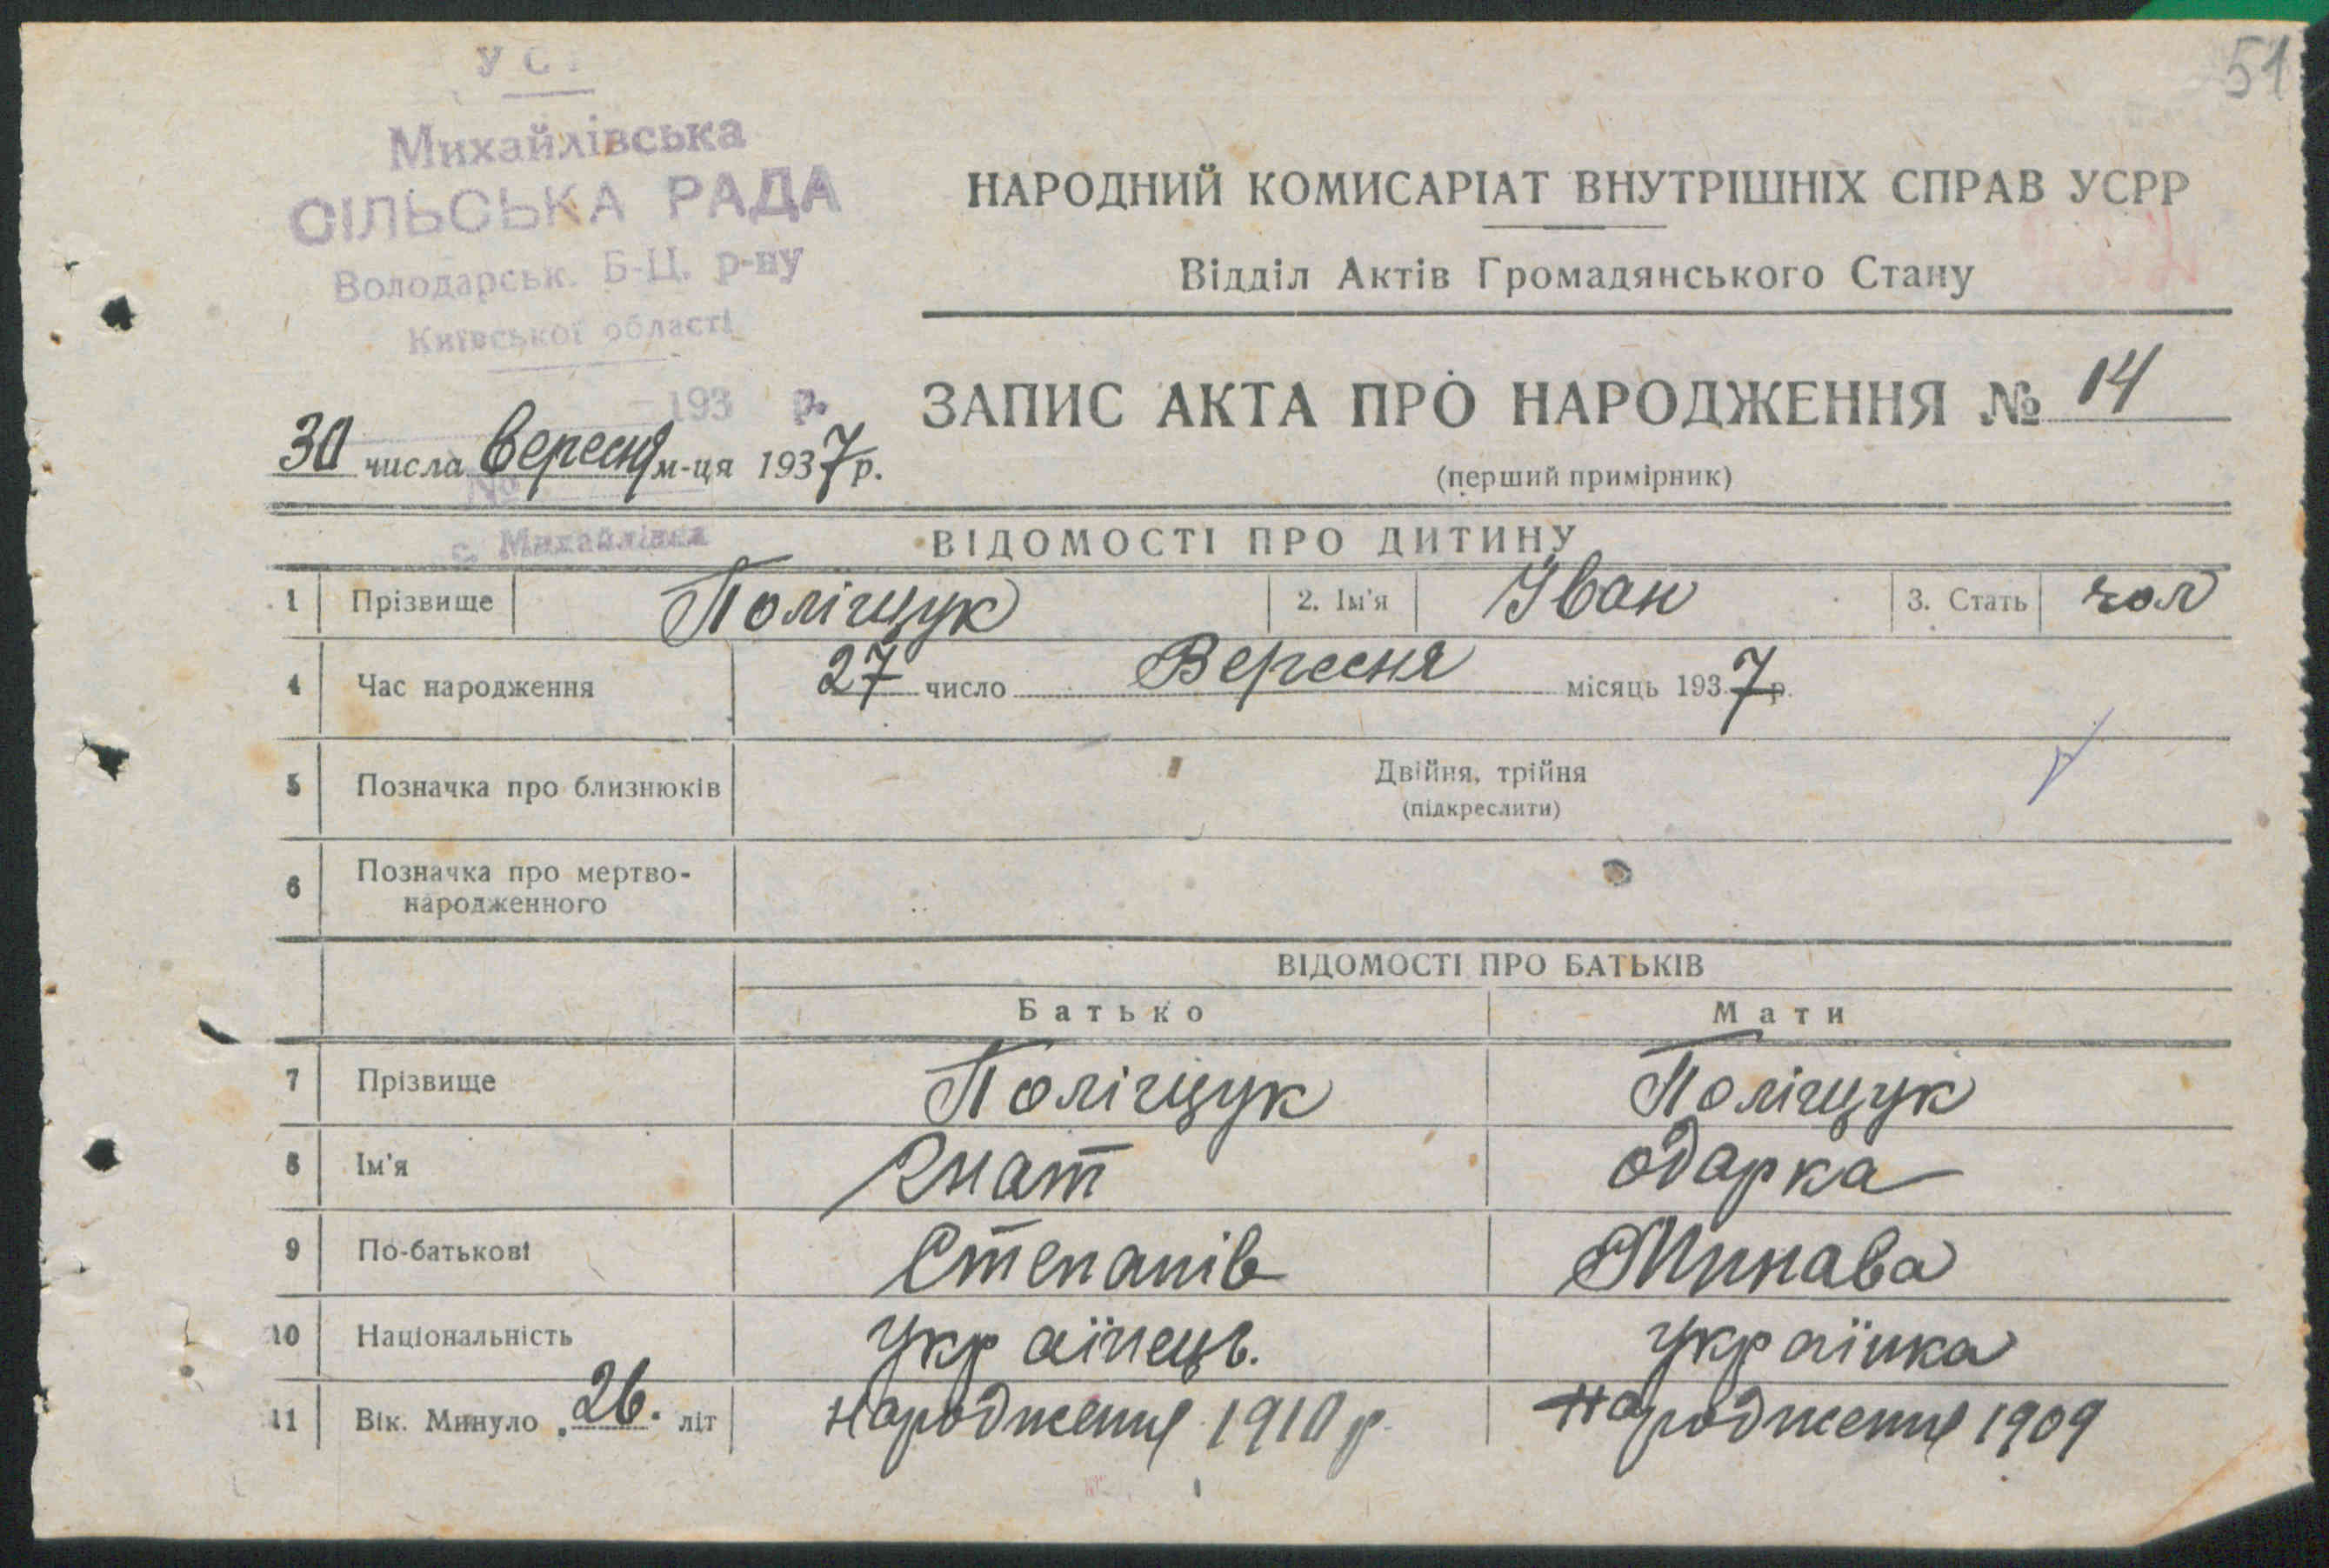 51
Михайлівська
СІЛЬСЬКА РАДА
Володарськ. Б-Ц. р-ну
Київської області
193 р.
№
с. Михайлівка
НАРОДНИЙ КОМИСАРІАТ ВНУТРІШНІХ СПРАВ УСРР
Відділ Актів Громадянського Стану
ЗАПИС АКТА ПРО НАРОДЖЕННЯ № 14
30 числа вересня м-ця 1937 р.
(перший примірник)
ВІДОМОСТІ ПРО ДИТИНУ
1 Прізвище Поліщук 2. Ім'я Іван 3. Стать чол
4 Час народження 27 число Вересня місяць 1937 р.
5 Позначка про близнюків Двійня, трійня
(підкреслити)
6 Позначка про мертво-
народженного
ВІДОМОСТІ ПРО БАТЬКІВ
Батько Мати
7 Прізвище Поліщук Поліщук
8 Ім'я Гнат Одарка
9 По-батькові Степанів Минава
10 Національність Українець. Українка
11 Вік. Минуло 26. літ народження 1910 р. народження 1909